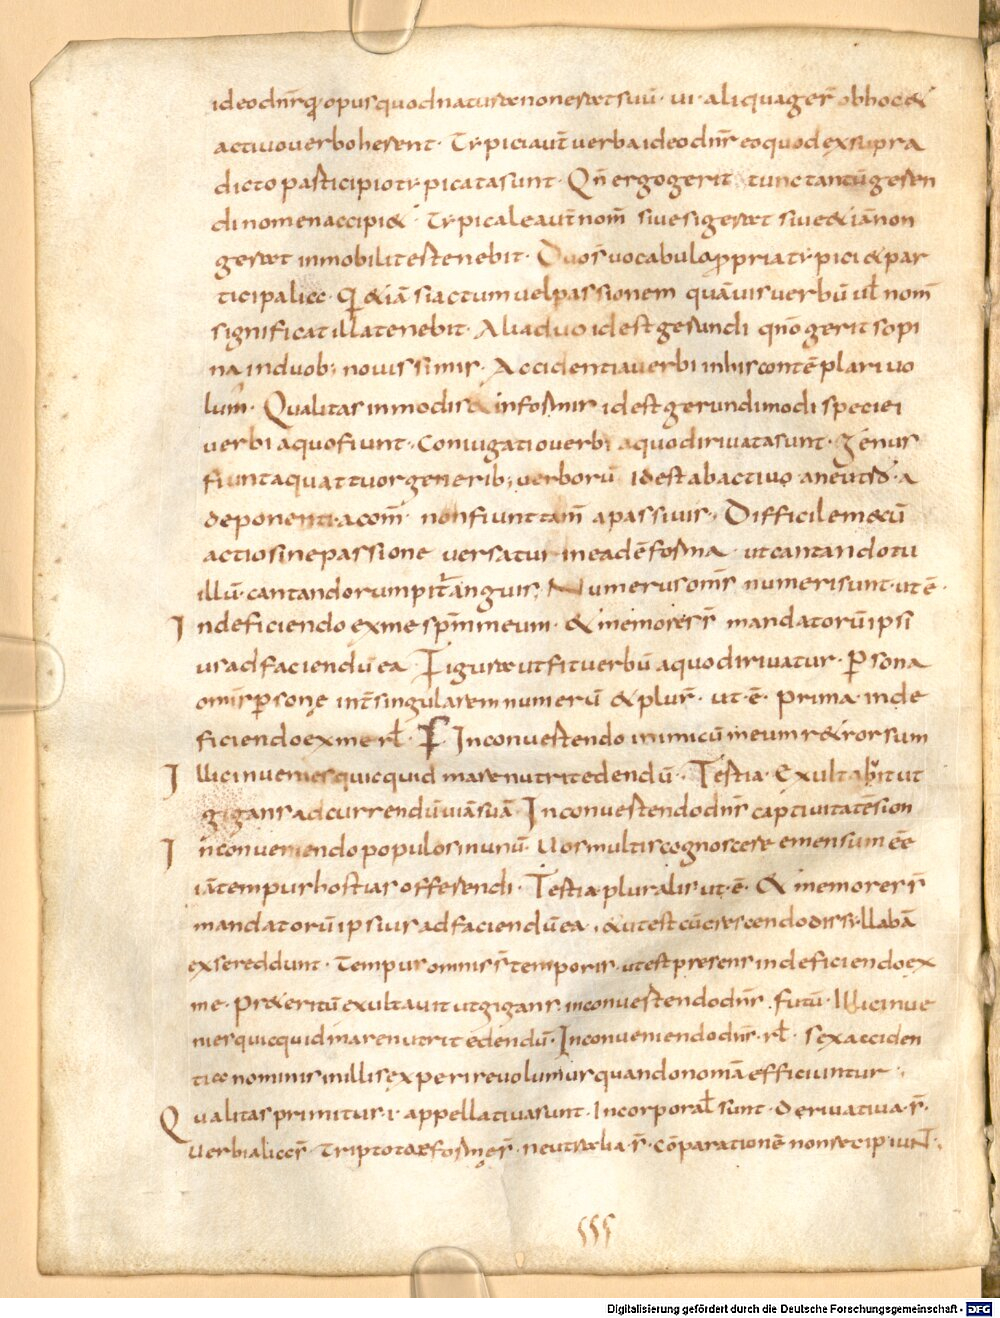 ideo dnr̄ qi opus quod naturae non erat suū · ut aliqua ger̄ ob hoc &
actiuo uerbo heserit · Typici aut̄ uerba ideo dnr̄ eo quod ex supra
dicto participio typicata sunt · Qn̄ ergo gerit tunc tantū geren
di nomen accipi& · Typicale aut̄ nom̄ siue si gerat siue &iā non
gerat inmobilit este nebit · Duo s̄ uocabula ꝓpria typici & par
ticipalia · Q &iā si actum uel passionem quāuis uerbū ul̄ nom̄
significat illa tenebit · Alia duo id est gerundi qn̄o gerit sopi
na in duob; nouissimis · Accidentia uerbi in his contēplari uo
lum̄ · Qualitas in modis & in formis id est gerundi modi speciei
uerbi a quo fiunt · Coniugatio uerbi a quo diriuata sunt · Genus
fiunt a quattuor generib; uerborū id est ab actiuo a neut̄
deponenti · a com̄ · non fiunt tam̄ a passiuis · Difficile mecū
actio sine passione uersatur in eadē forma · ut cantando tu
illū · cantando rumpit̄ anguis; Numerus om̄s numeri sunt · ut ē ·
In deficiendo ex me spm̄ meum · & memores s̄ mandatorū ipsi
us ad faciendū ea · Figura ut fit uerbū a quo diriuatur · Psona
om̄s psonę int̄ singularem numerū & plur̄ · ut · ē · prima · in de
ficiendo ex me rl̄ · In conuertendo inimicū meum r&rorsum
Illic inuenies quicquid mare nutrit edendū · Tertia · Exultabit ut
gigans ad currendū uiā suā · In conuertendo dnr̄ captiuitatē sion
In conueniendo populos in unū · Uos multis cognoscere emensum eē
iā tempus hostias offerendi · Tertia pluralis ut · ē · & memores s̄
mandatorū ipsius ad faciendū ea · & ut est cū crescendo dissyllabā
ex se reddunt · Tempus omnis s̄ temporis · ut est presens in deficiendo ex
me · Pr&eritū exultauit ut gigans · in conuertendo dnr̄ · futū · Illic inue
nies quicquid mare nutrit edendū · In conueniendo dnr̄ · rl̄ · Sex acciden
tia nominis in illis experire uolumus quando nom̄a efficiuntur ·
Qualitas primitus · i · appellatiua sunt · Incorporal̄ sunt · Deriuatiua · s̄ ·
Uerbialia s̄ · Triptota formę s̄ · neutralia · s̄ · Cōparationē non recipiunt ·
Digitalisierung gefördert durch die Deutsche Forschungsgemeinschaft - DFG